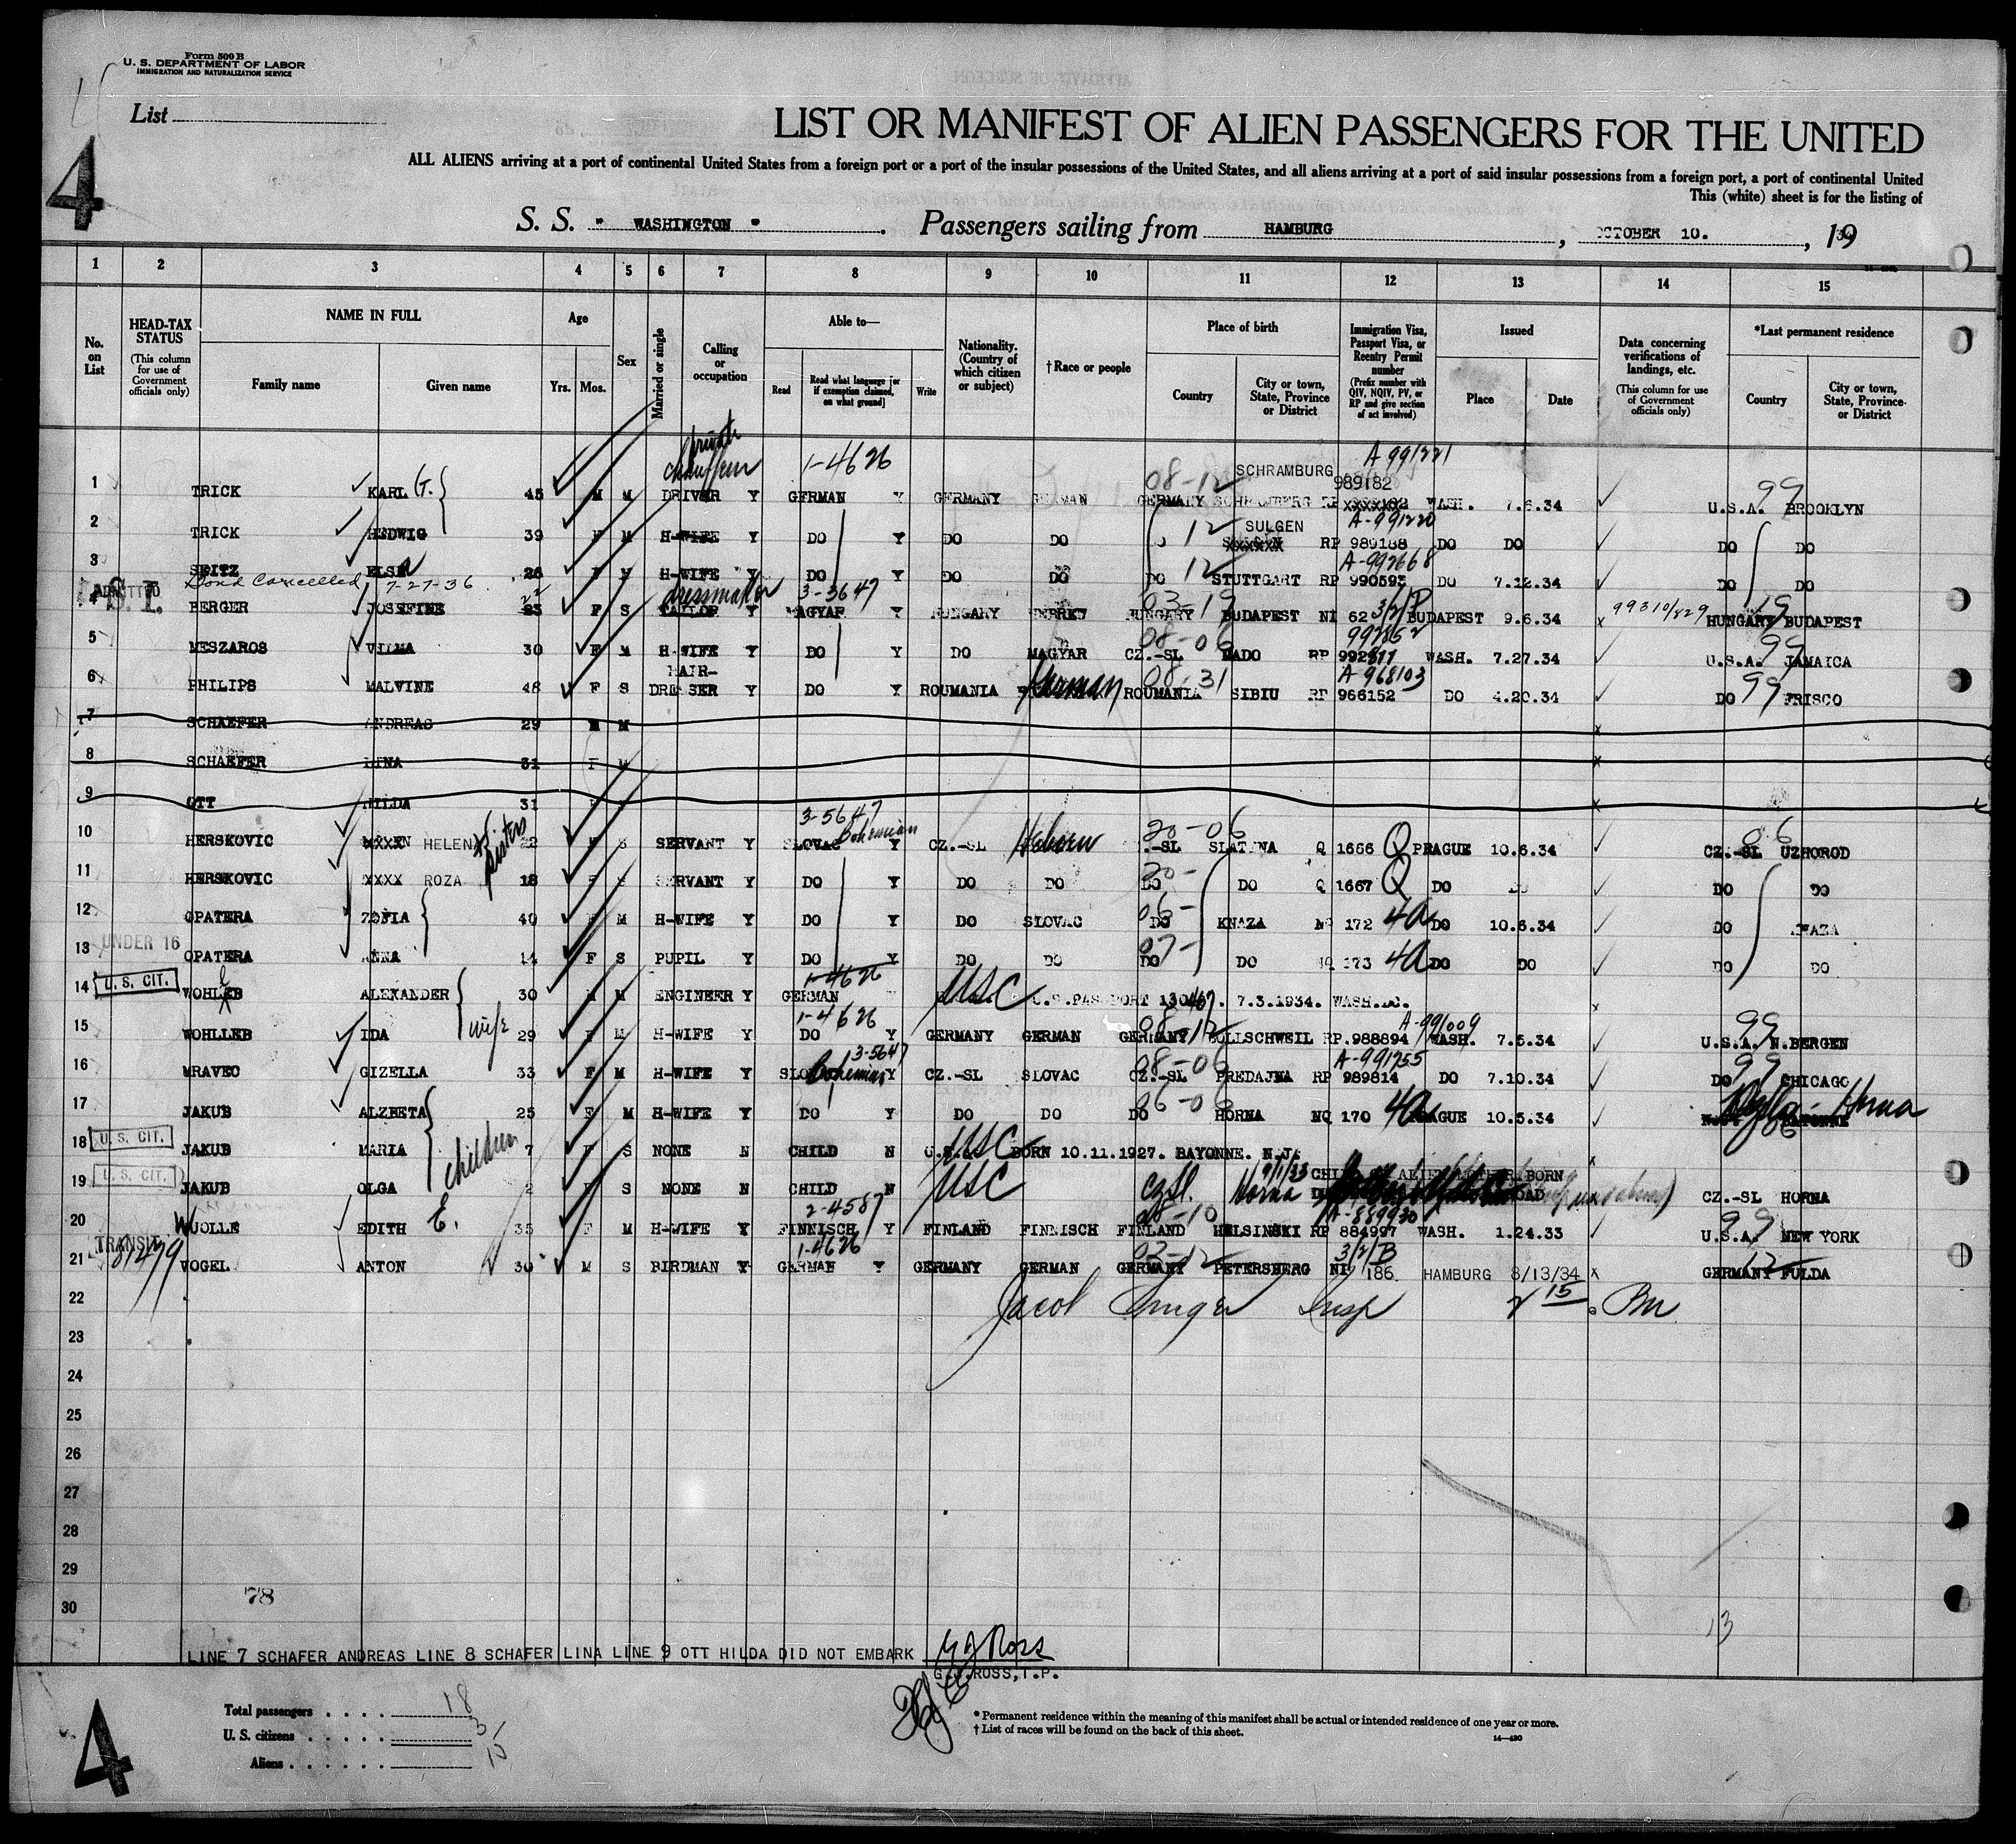 Form 500 B
U. S. DEPARTMENT OF LABOR
IMMIGRATION AND NATURALIZATION SERVICE
List
4
LIST OR MANIFEST OF ALIEN PASSENGERS FOR THE UNITED
ALL ALIENS arriving at a port of continental United States from a foreign port or a port of the insular possessions of the United States, and all aliens arriving at a port of said insular possessions from a foreign port, a port of continental United
This (white) sheet is for the listing of
S. S. " WASHINGTON " . Passengers sailing from HAMBURG , OCTOBER 10. , 1934
1 2 3 4 5 6 7 8 9 10 11 12 13 14 15
No. on List
HEAD-TAX STATUS (This column for use of Government officials only)
NAME IN FULL Family name Given name
Age Yrs. Mos.
Sex
Married or single
Calling or occupation
Able to— Read Read what language [or if exemption claimed, on what ground] Write
Nationality. (Country of which citizen or subject)
†Race or people
Place of birth Country City or town, State, Province or District
Immigration Visa, Passport Visa, or Reentry Permit number (Prefix number with QIV, NQIV, PV, or RP and give section of act involved)
Issued Place Date
Data concerning verifications of landings, etc. (This column for use of Government officials only)
*Last permanent residence Country City or town, State, Province or District
private chauffeur 1-4626 08-12 SCHRAMBURG 989182 A 991221
1 TRICK KARL G. 45 M M DRIVER Y GERMAN Y GERMANY GERMAN GERMANY RP WASH. 7.6.34 U.S.A. 99 BROOKLYN
12 SULGEN A-991220
2 TRICK HEDWIG 39 F M H-WIFE Y DO Y DO DO DO RP 989188 DO DO DO DO
12 A-992668
3 SEITZ ELSA 26 F M H-WIFE Y DO Y DO DO DO STUTTGART RP 990593 DO 7.12.34 DO DO
ADMITTED S.I. Bond Cancelled 7-27-36 22 dressmaker 3-3647 02-19 3/2/B 99310/829 19
4 BERGER JOSEFINE 23 F S TAILOR Y MAGYAR Y HUNGARY HEBREW HUNGARY BUDAPEST NI 62 BUDAPEST 9.6.34 x HUNGARY BUDAPEST
08-06 99
5 MESZAROS VILMA 30 F M H-WIFE Y DO Y DO MAGYAR CZ.-SL RP WASH. 7.27.34 U.S.A. JAMAICA
German 08-31 A-968103 99
6 PHILIPS MALVINE 48 F S HAIR-DRESSER Y DO Y ROUMANIA ROUMANIA SIBIU RP 966152 DO 4.20.34 DO FRISCO
7 SCHAEFER ANDREAS 29 M M x
8 SCHAEFER LINA 31 F M x
9 OTT HILDA 31 x
3-5647 Bohemian Hebrew 20-06 06
10 HERSKOVIC HELENA 22 F S SERVANT Y SLOVAC Y CZ.-SL CZ.-SL SLATINA Q 1666 Q PRAGUE 10.6.34 CZ.-SL UZHOROD
sisters 20-
11 HERSKOVIC XXXX ROZA 18 F S SERVANT Y DO Y DO DO DO DO Q 1667 Q DO DO DO DO
06-
12 OPATERA ZOFIA 40 F M H-WIFE Y DO Y DO SLOVAC DO KNAZA NQ 172 4a DO 10.6.34 DO KNAZA
UNDER 16 07-
13 OPATERA ANNA 14 F S PUPIL Y DO Y DO DO DO DO NQ 173 4a DO DO DO DO
U. S. CIT. 1-4626
14 WOHLLEB ALEXANDER 30 M M ENGINEER Y GERMAN USC U.S.PASSPORT 130467. 7.3.1934. WASH.DC. x
wife 1-4626 08-12 A-991009 99
15 WOHLLEB IDA 29 F M H-WIFE Y DO Y GERMANY GERMAN GERMANY BOLLSCHWEIL RP.988894 WASH. 7.5.34 U.S.A. N.BERGEN
3-5647 Bohemian 08-06 A-991755 99
16 MRAVEC GIZELLA 33 F M H-WIFE Y SLOVAC Y CZ.-SL SLOVAC CZ.-SL PREDAJNA RP 989814 DO 7.10.34 DO CHICAGO
06-06 Horna 06
17 JAKUB ALZBETA 25 F M H-WIFE Y DO Y DO DO DO HORNA NQ 170 4a PRAGUE 10.5.34
children
U. S. CIT.
18 JAKUB MARIA 7 F S NONE N CHILD N U.S. USC BORN 10.11.1927. BAYONNE. N.J. x
U. S. CIT.
19 JAKUB OLGA 2 F S NONE N CHILD N USC CzSl. Horna 9/1/33 CZ.-SL HORNA
2-4587 08-10 A-889930 99
20 WUOLLE EDITH E. 35 F M H-WIFE Y FINNISCH Y FINLAND FINNISCH FINLAND HELSINSKI RP 884997 WASH. 1.24.33 U.S.A. NEW YORK
TRANSIT 1-4626 02-12 3/2/B 12
21 VOGEL ANTON 30 M S BIRDMAN Y GERMAN Y GERMANY GERMAN GERMANY PETERSBERG NI 186 HAMBURG 8/13/34 x GERMANY FULDA
22 Jacob Singer Insp 2 15
23
24
25
26
27
28
29
78
30
13
LINE 7 SCHAFER ANDREAS LINE 8 SCHAFER LINA LINE 9 OTT HILDA DID NOT EMBARK G J Ross
G.J.ROSS,T.P.
4
Total passengers . . . . 18
U. S. citizens . . . . . 3
Aliens . . . . . . 15
* Permanent residence within the meaning of this manifest shall be actual or intended residence of one year or more.
† List of races will be found on the back of this sheet.
14—430